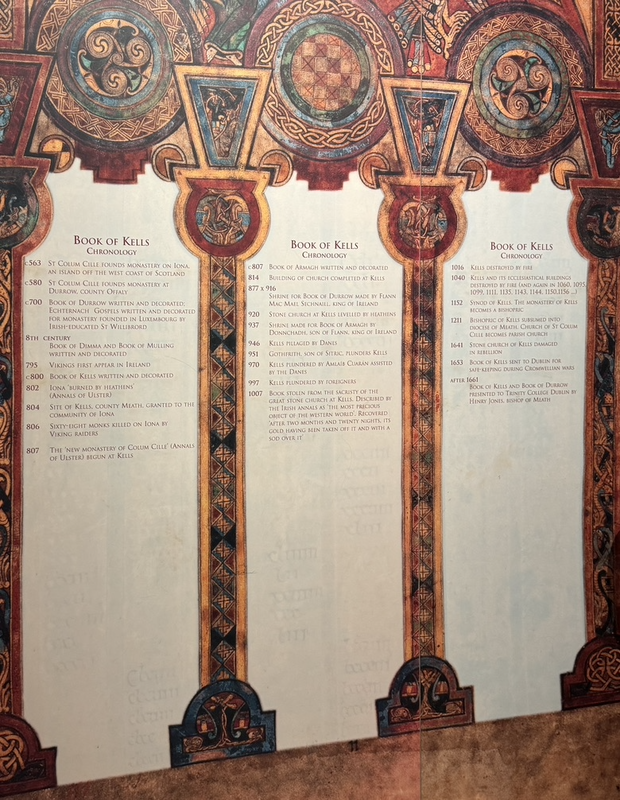 Book of Kells
Chronology
c563 St Colum Cille founds monastery on Iona,
an island off the west coast of Scotland
c580 St Colum Cille founds monastery at
Durrow, county Offaly
c700 Book of Durrow written and decorated;
Echternach Gospels written and decorated
for monastery founded in Luxembourg by
Irish-educated St Willibrord
8th century
Book of Dimma and Book of Mulling
written and decorated
795 Vikings first appear in Ireland
c800 Book of Kells written and decorated
802 Iona 'burned by heathens'
(Annals of Ulster)
804 Site of Kells, county Meath, granted to the
community of Iona
806 Sixty-eight monks killed on Iona by
Viking raiders
807 The 'new monastery of Colum Cille' (Annals
of Ulster) begun at Kells
Book of Kells
Chronology
c807 Book of Armagh written and decorated
814 Building of church completed at Kells
877 x 916
Shrine for Book of Durrow made by Flann
Mac Mael Sechnaill, king of Ireland
920 Stone church at Kells levelled by heathens
937 Shrine made for Book of Armagh by
Donnchadh, son of Flann, king of Ireland
946 Kells pillaged by Danes
951 Gothfrith, son of Sitric, plunders Kells
970 Kells plundered by Amlaib Cuarán assisted
by the Danes
997 Kells plundered by foreigners
1007 Book stolen from the sacristy of the
great stone church at Kells. Described by
the Irish annals as 'the most precious
object of the western world'. Recovered
'after two months and twenty nights, its
gold having been taken off it and with a
sod over it'
Book of Kells
Chronology
1016 Kells destroyed by fire
1040 Kells and its ecclesiastical buildings
destroyed by fire (and again in 1060, 1093,
1099, 1111, 1135, 1143, 1144, 1150, 1156 ...)
1152 Synod of Kells. The monastery of Kells
becomes a bishopric
1211 Bishopric of Kells subsumed into
diocese of Meath. Church of St Colum
Cille becomes parish church
1641 Stone church of Kells damaged
in rebellion
1653 Book of Kells sent to Dublin for
safe-keeping during Cromwellian wars
after 1661
Book of Kells and Book of Durrow
presented to Trinity College Dublin by
Henry Jones, bishop of Meath